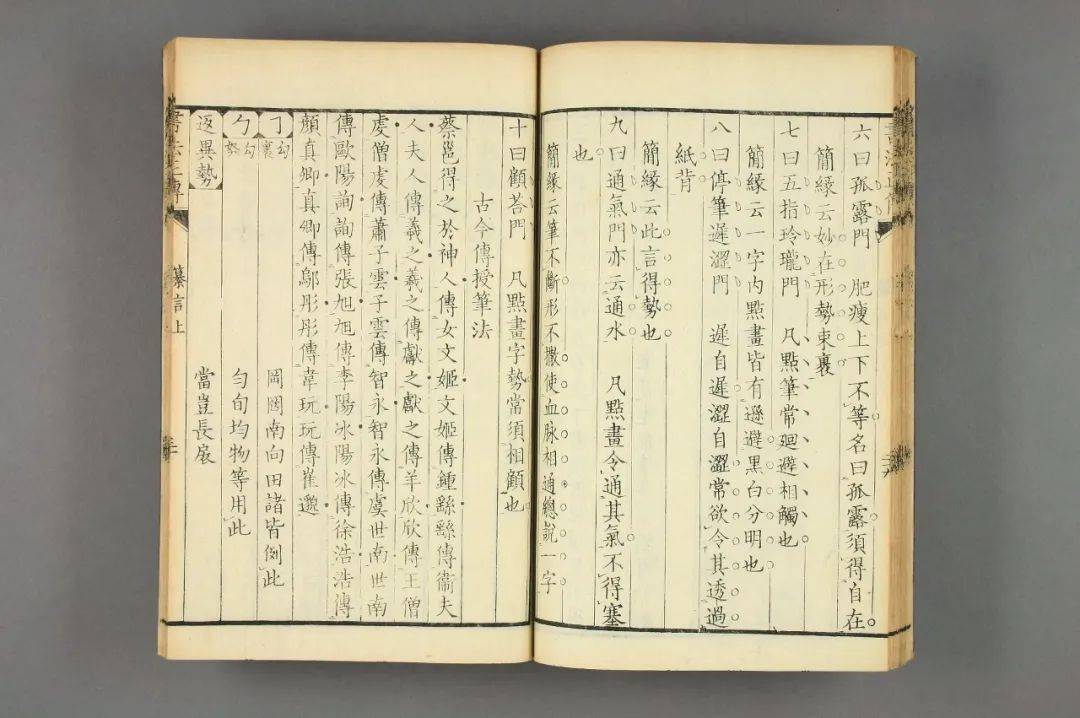 六曰孤露門　肥瘦上下不等名曰孤露須得自在
簡緣云妙在形勢束裹
七曰五指玲瓏門　凡點筆常迴避相觸也
簡緣云一字內點畫皆有遜避黑白分明也
八曰停筆遲澀門　遲自遲澀自澀常欲令其透過
紙背
簡緣云此言得勢也
九曰通氣門亦云通水　凡點畫令通其氣不得塞
也
簡緣云筆不斷形不撒使血脉相通總說一字
十曰顧荅門　凡點畫字勢當須相顧也
古今傳授筆法
蔡邕得之於神人傳女文姬文姬傳鍾繇繇傳衞夫
人夫人傳羲之羲之傳獻之獻之傳羊欣欣傳王僧
虔僧虔傳蕭子雲子雲傳智永智永傳虞世南世南
傳歐陽詢詢傳張旭旭傳李陽冰陽冰傳徐浩浩傳
顏真卿真卿傳鄔彤彤傳韋玩玩傳崔邈
𠃌勾裏　岡罔南向田諸皆倒此
勹勾努　勻旬均物等用此
返異勢　當豈長扆
纂言上